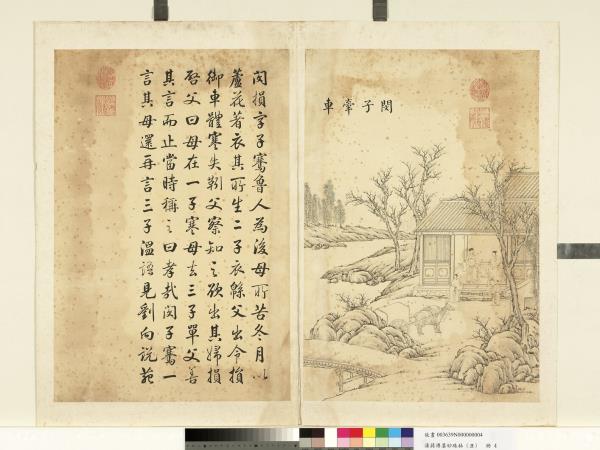 閔子牽車
閔損字子騫魯人為後母所苦冬月以
蘆花著衣其所生二子衣緜父出令損
御車體寒失靷父察知之欲出其婦損
啓父曰母在一子寒母去三子單父善
其言而止當時稱之曰孝哉閔子騫一
言其母還再言三子溫語見劉向說苑
故畫 003639N000000004
珠林（丑） 冊 4